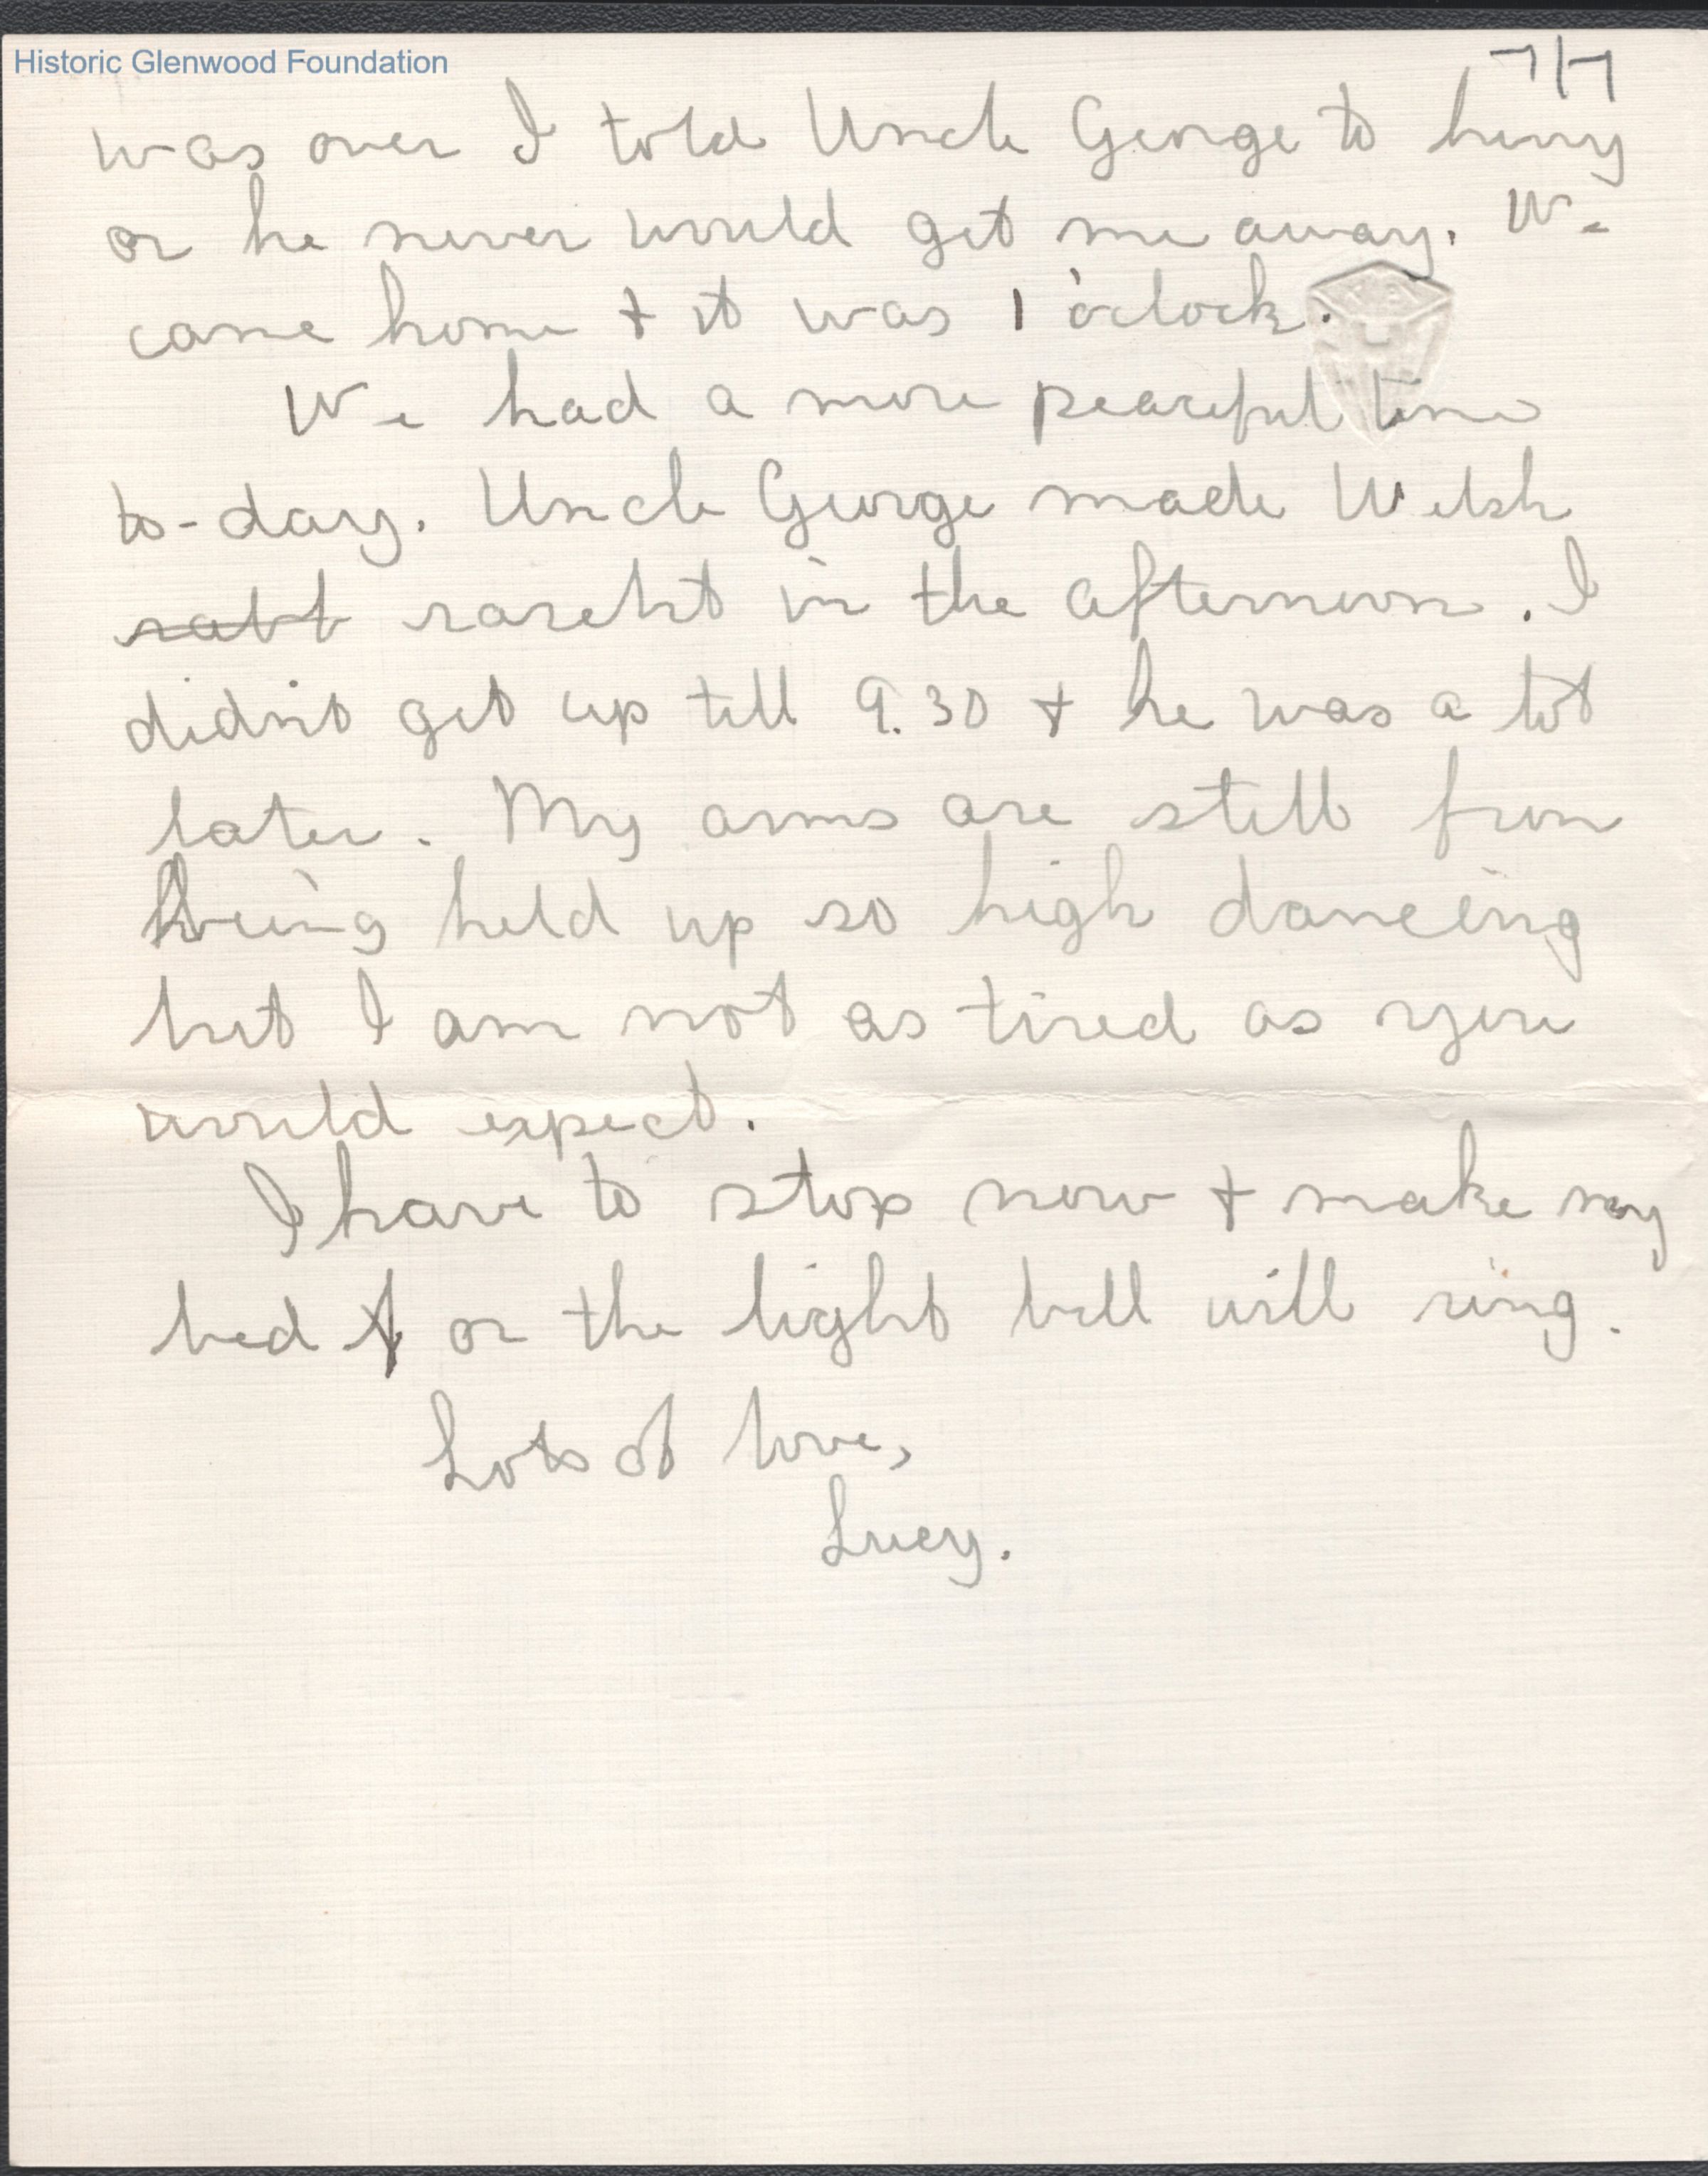 Historic Glenwood Foundation
7/7
was over I told Uncle George to hurry
or he never would get me away. We
came home + it was 1 o'clock.
We had a more peaceful time
to-day. Uncle George made Welsh
rabb rarebit in the afternoon. I
didn't get up till 9.30 + he was a lot
later. My arms are still from
being held up so high dancing
but I am not as tired as you
would expect.
I have to stop now + make my
bed + or the light bell will ring.
Lots of love,
Lucy.